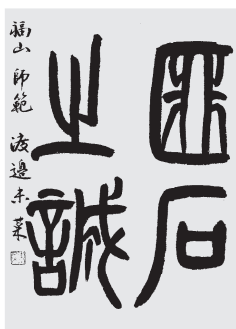 匪石
之誠
福山 師範 渡邉未菜